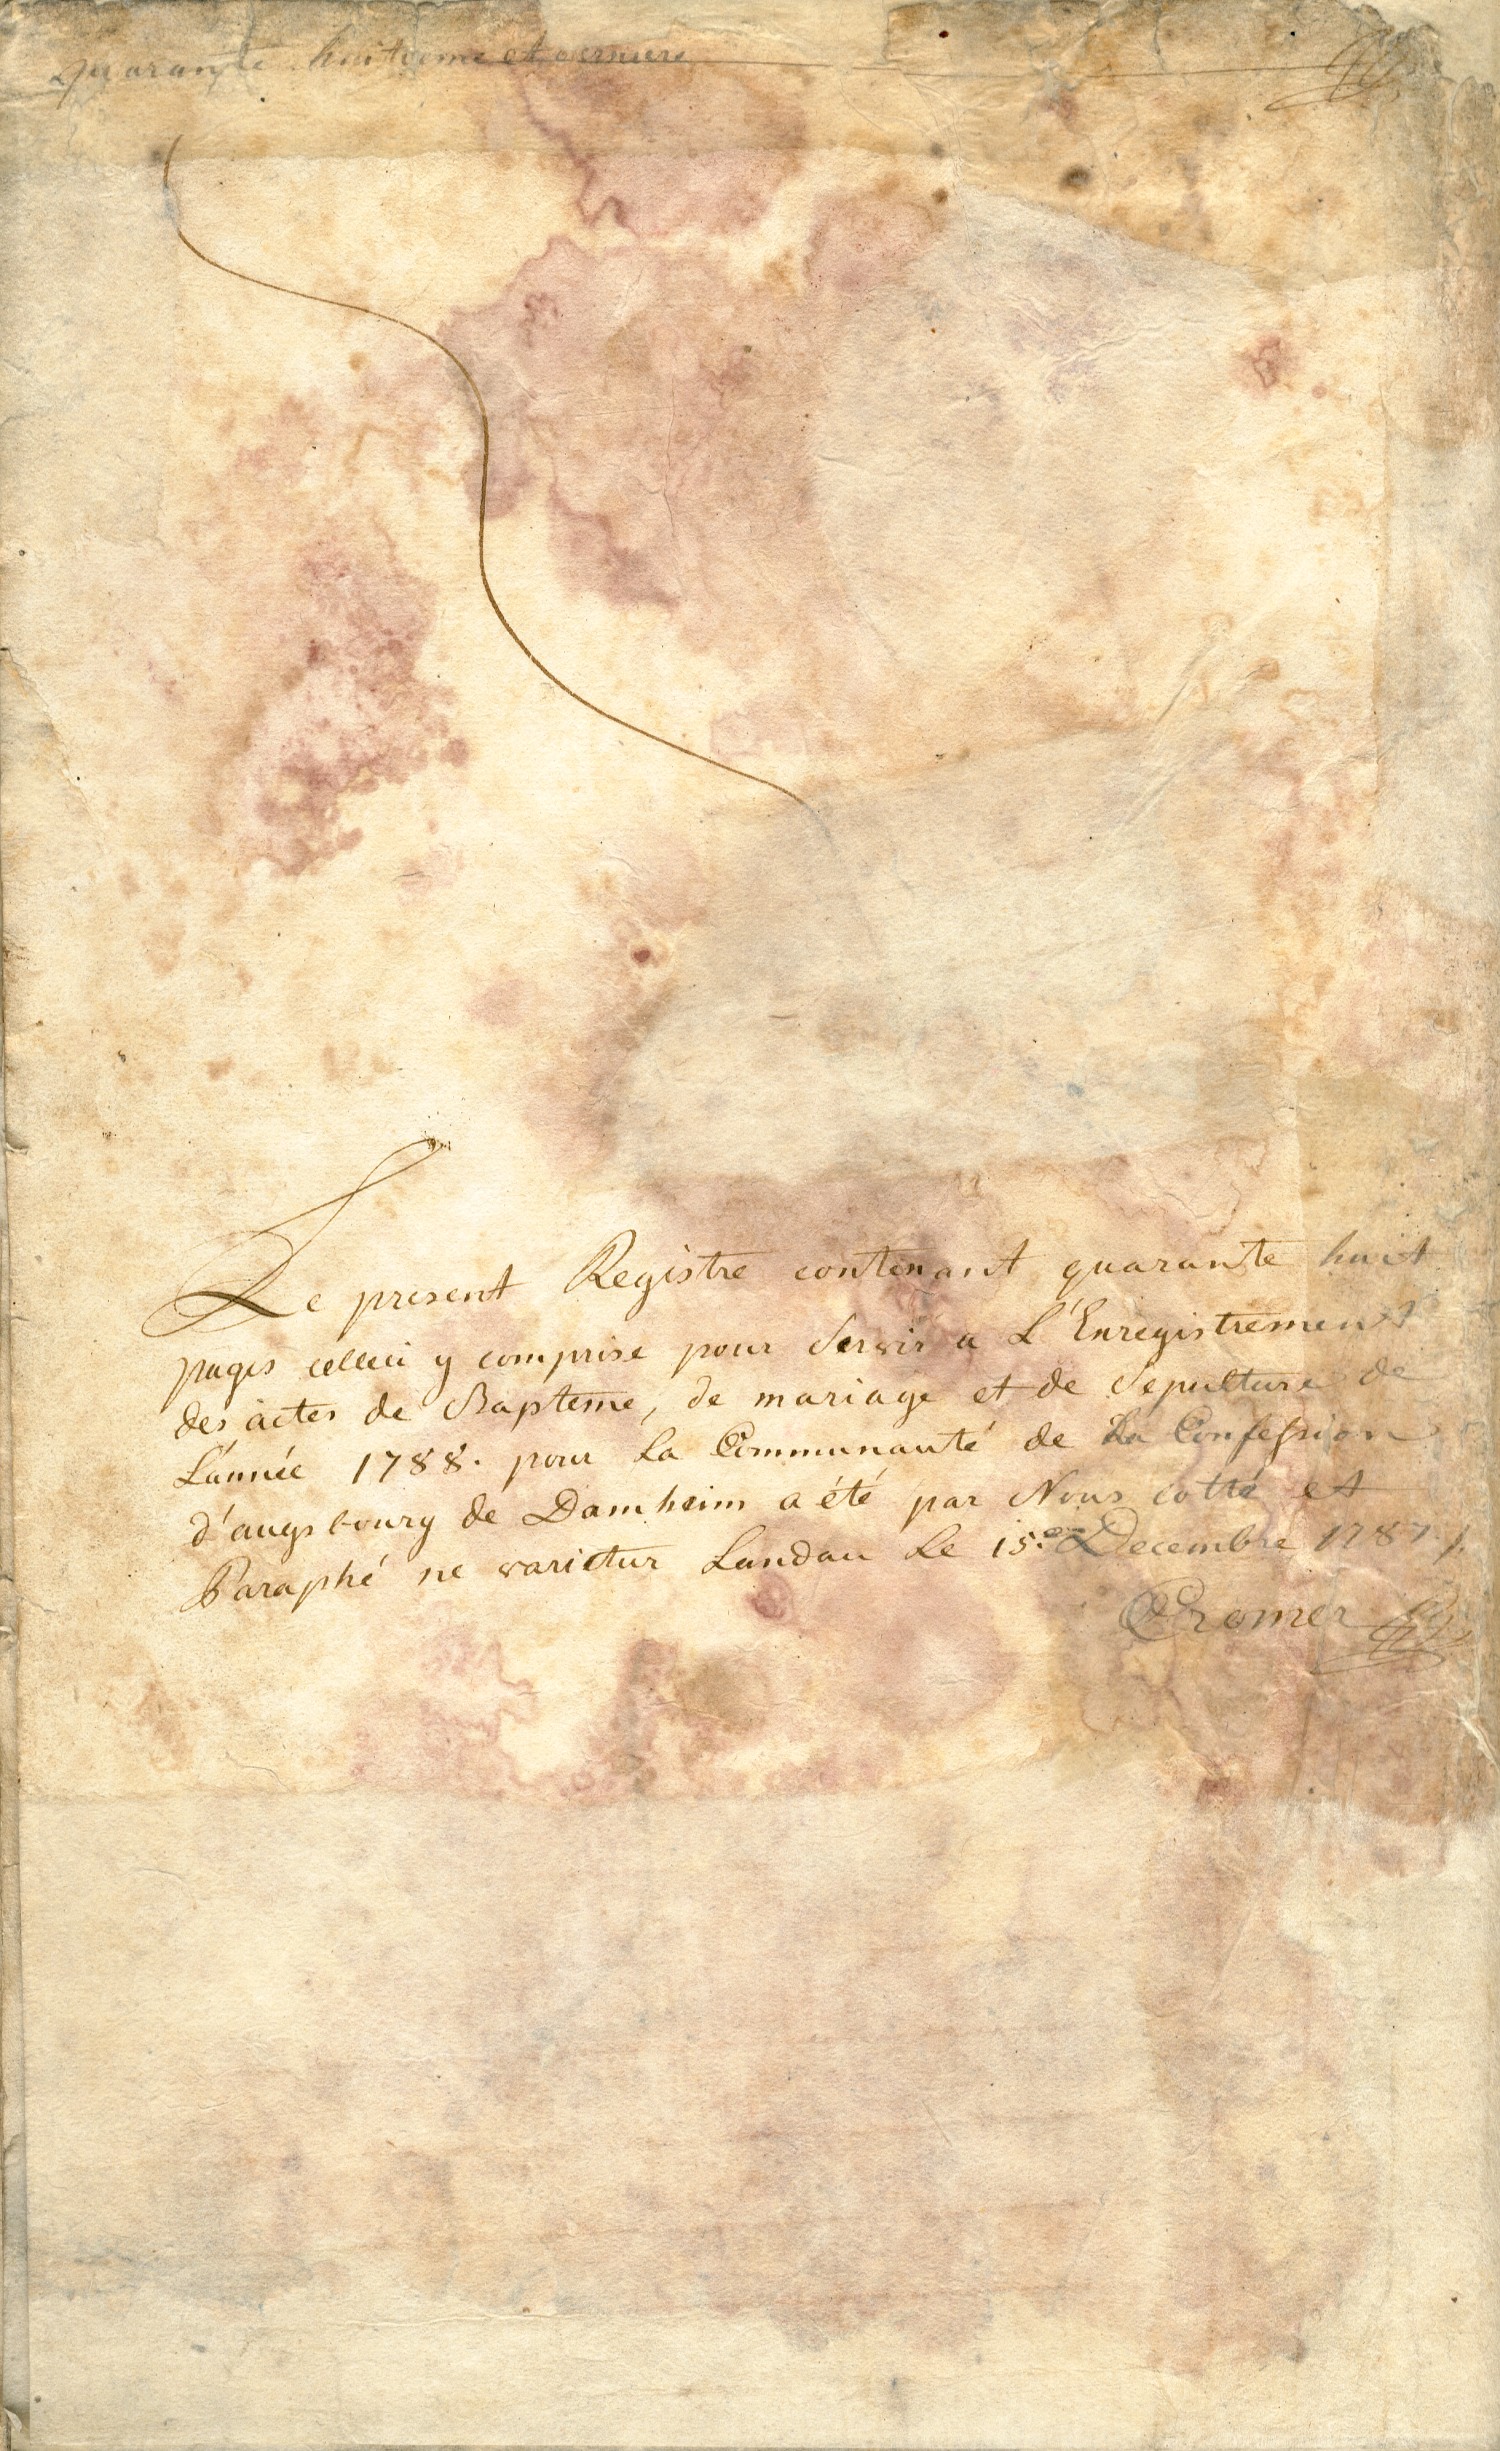 quarante huitieme et derniere
Le present Registre contenant quarante huit
pages celleci y comprise pour Servir a L'Enregistrement
des actes de Bapteme, de mariage et de Sepulture de
L'année 1788. pour La Communauté de La Confession
d'augsbourg de Damheim a été par Nous cotté et
Paraphé ne varietur Landau Le 15.e Decembre 1787./.
Cromer